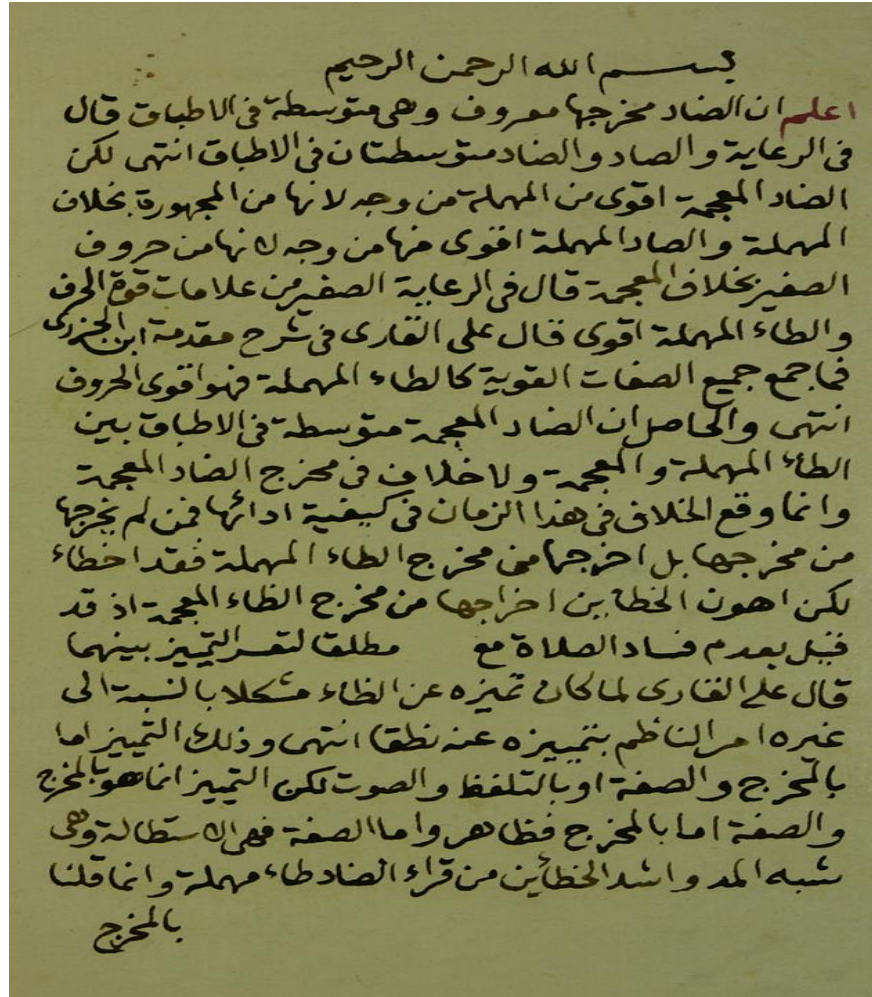 بسم الله الرحمن الرحيم
اعلم ان الضاد مخرجها معروف وهى متوسطة فى الاطباق قال
فى الرعاية والصاد والضاد متوسطتان فى الاطباق انتهى لكن
الضاد المعجمة اقوى من المهملة من وجه لانها من المجهورة بخلاف
المهملة والصاد المهملة اقوى منها من وجه لانها من حروف
الصفير بخلاف المعجمة قال فى الرعاية الصفير من علامات قوة الحرف
والطاء المهملة اقوى قال على القارى فى شرح مقدمة ابن الجزرى
فما جمع جميع الصفات القوية كالطاء المهملة فهو اقوى الحروف
انتهى والحاصل ان الضاد المعجمة متوسطة فى الاطباق بين
الطاء المهملة والمعجمة ولا خلاف فى مخرج الضاد المعجمة
وانما وقع الخلاف فى هذا الزمان فى كيفية ادائها فمن لم يخرجها
من مخرجها بل اخرجها من مخرج الطاء المهملة فقد اخطاء
لكن اهون الخطاين اخراجها من مخرج الظاء المعجمة اذ قد
قيل بعدم فساد الصلاة مع مطلقا لتعسر التميز بينهما
قال على القارى لما كان تميزه عن الظاء مشكلا بالنسبة الى
غيره امر الناظم بتمييزه عنه نطقا انتهى وذلك التمييز اما
بالمخرج والصفة او بالتلفظ والصوت لكن التميز انما هو بالمخرج
والصفة اما بالمخرج فظاهر واما الصفة فهى الاستطالة وهى
شبه المد واشد الخطأين من قراء الضاد طاء مهملة وانما قلنا
بالمخرج